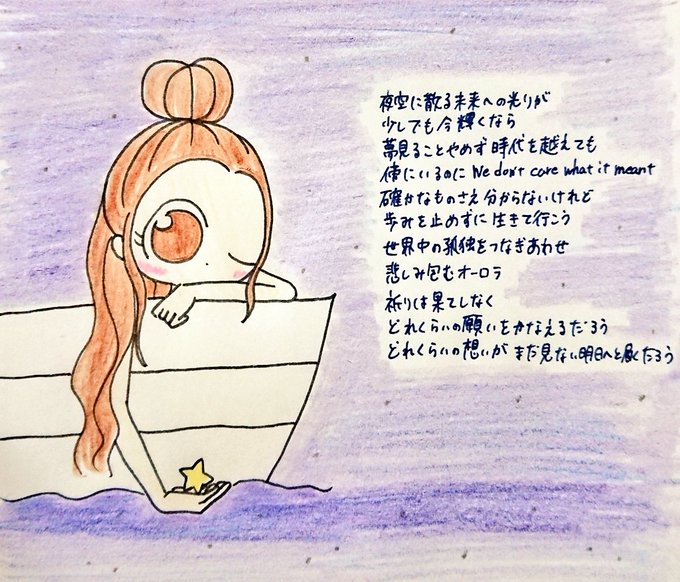 夜空に散る未来への光りが
少しでも今輝くなら
夢見ることやめず時代を越えても
傍にいるのに We don't care what it meant
確かなものさえ分からないけれど
歩みを止めずに生きて行こう
世界中の孤独をつなぎあわせ
悲しみ包むオーロラ
祈りは果てしなく
どれくらいの願いをかなえるだろう
どれくらいの想いがまだ見ない明日へと届くだろう